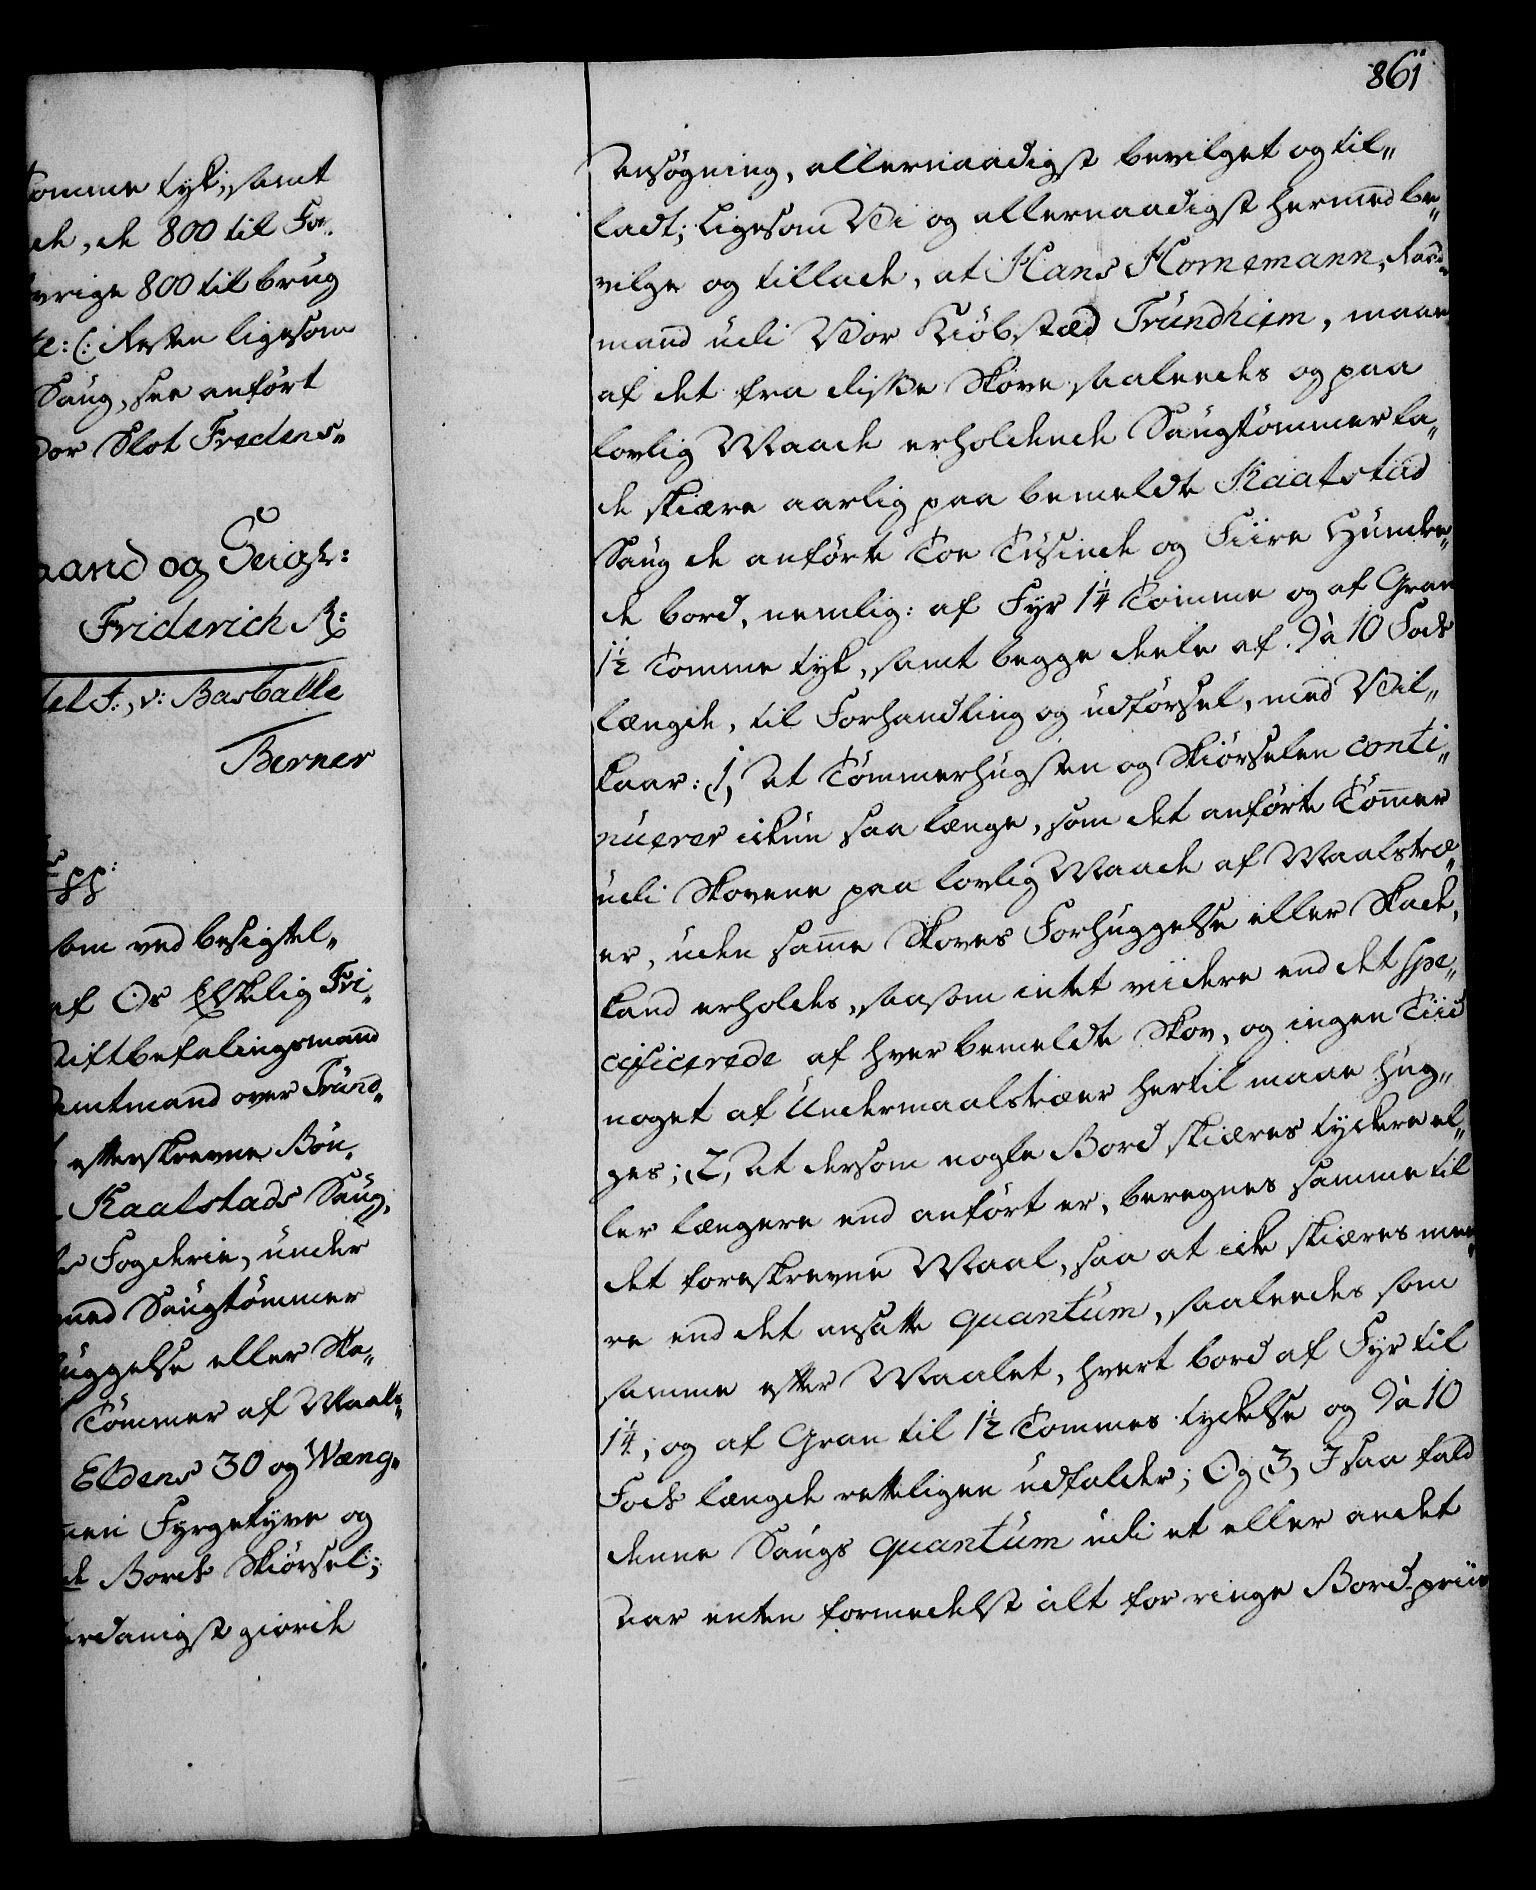 tomme tyk; samt
de, de 800 til For,
øvrige 800 til brug
te: (: Resten ligesom
Saug, see anført
Vor Slot Fredens„
aand og Seigl:
Friderich R:
del f:, v: Barballe
Berner
ss:
som ved besigtel„
af Os Elskelig Fri„
Stiftbefalingsmand
Amtmand over Trund„
efterskrevne Bøn„
Kaalstads Saug,
Fogderie, under
med Saugtømmer
huggelse eller Ska„
Tømmer af Maals„
Eldens 30 og Wæng„
men Fyrgetyve og
de Bords Skiørsel;
erdanigst giorde
861
Ansøgning, allernaadigst bevilget og til„
ladt; Ligesom Vi og allernaadigst hermed be„
vilge og tillade, at Hans Hornemann, Raad„
mand udi Vor Kiøbstæd Trundhiem, maae
af det fra disse Skove saaleedes og paa
lovlig Maade erholdende Saugtømmer la„
de skiære aarlig paa bemeldte Kaatstad
Saug de anførte Toe Tusinde og Fiire Hundre„
de bord, nemlig: af Fyr 1¼ Tomme og af Gran
1½ Tomme tyk, samt begge deele af 9 à 10 Fods
længde, til Forhandling og udførsel, med Vil„
kaar: 1, At Tømmerhugsten og Skiørselen conti„
nuerer ickun saa længe, som det anførte Tømer
udi Skovene paa lovlig Maade af Maalstræ„
er, uden same Skoves Forhuggelse eller Skade,
kand erholdes, saasom intet viidere end det spe„
cificerede af hver bemeldte Skov, og ingen Tiid
noget af Undermaalstræer hertil maae hug„
ges; 2, At dersom nogle Bord skiæres tyckere el„
ler længere end anført er, beregnes samme til
det foreskrevne Maal, saa at icke skiæres mee„
re end det ansatte quantum, saaleedes som
samme efter Maalet, hvert bord af Fyr til
1¼, og af Gran til 1½ Tommes tyckelse og 9 à 10
Fods længde retteligen udfalder; Og 3, I saa fald
denne Saugs quantum udi et eller andet
Aar enten formedelst alt for ringe Bord-priis